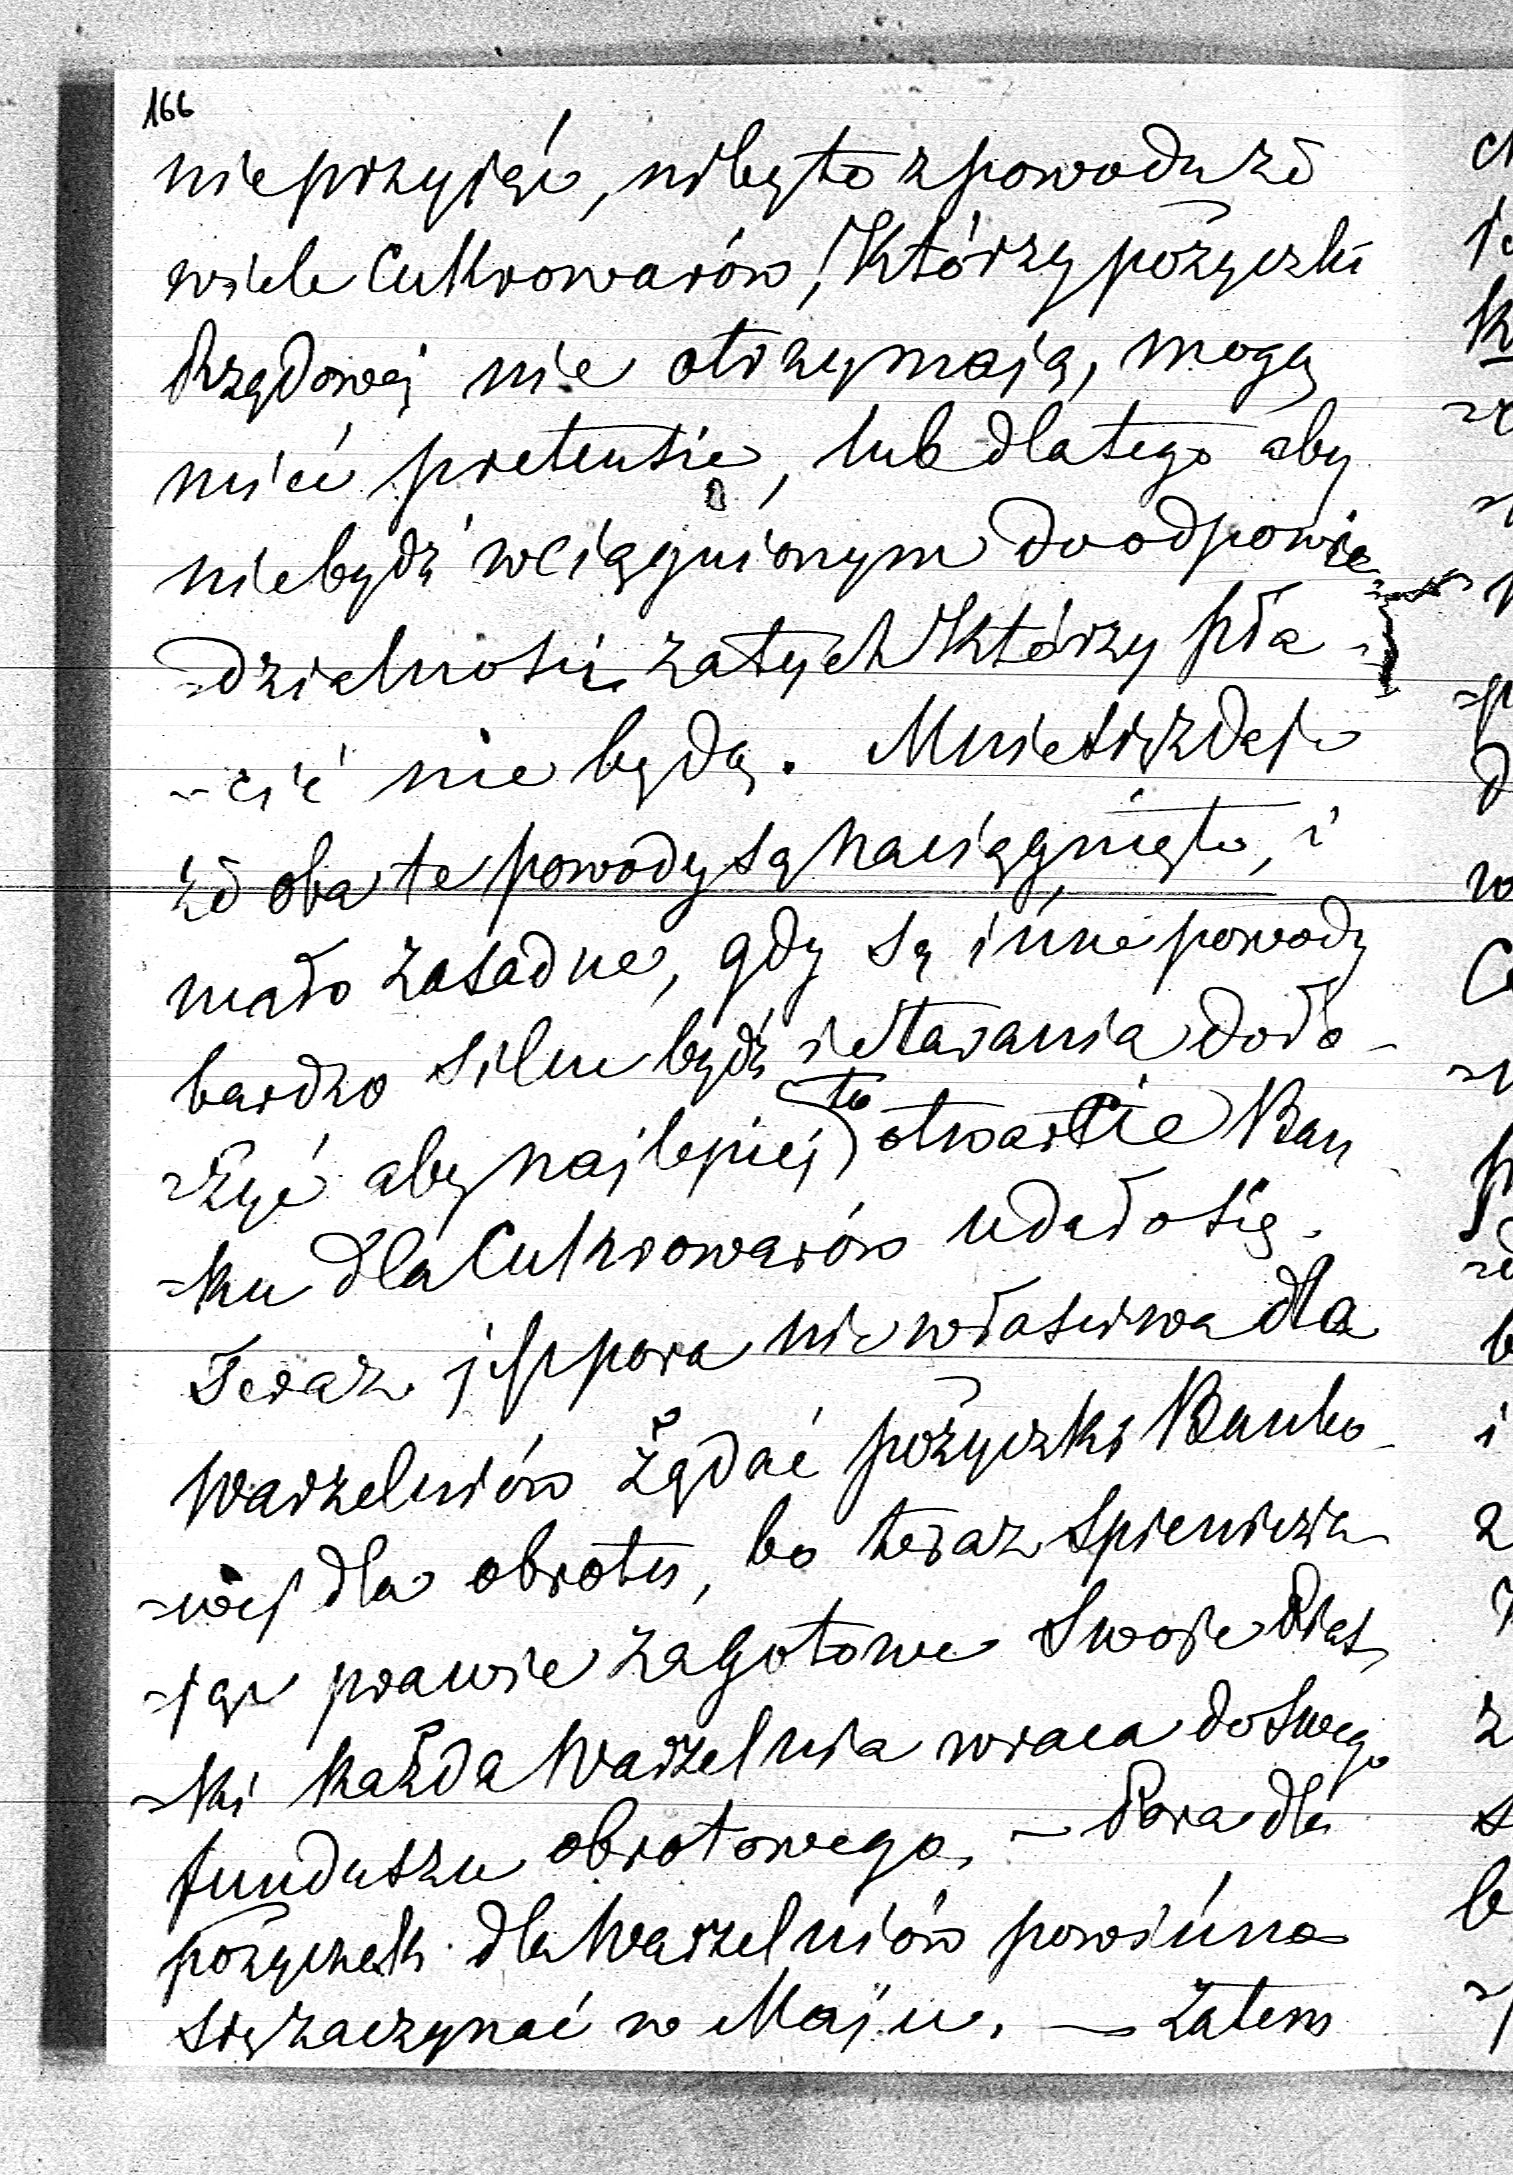 166
nieprzyjąć, niby to z powodu że
wiele Cukrowarów, Którzy pożyczki
Rządowej nie otrzymają, mogą
mieć pretensie, lub dlatego aby
niebydź wciągnionym do odpowie-
-dzialności za tych Którzy pła-
-cić nie będą. Mnie się zdaje
że oba te powody są naciągnięte, i
mało zasadne, gdy są inne powody
bardzo silne bydź i starania doło-
-żyć aby najlepiej to otwarcie Ban
-ku dla Cukrowarów udało się.
Teraz jest pora nie właściwa dla
Warzelniów żądać pożyczki Banko-
-wej dla obrotu, bo teraz spienięża
-jąc prawie zagotowe swoje Pias
-ki każda Warzelnia wraca do swego
funduszu obrotowego. — Pora dla
pożyczek dla Warzelniów powinna
się zaczynać w Maju. — Zatem